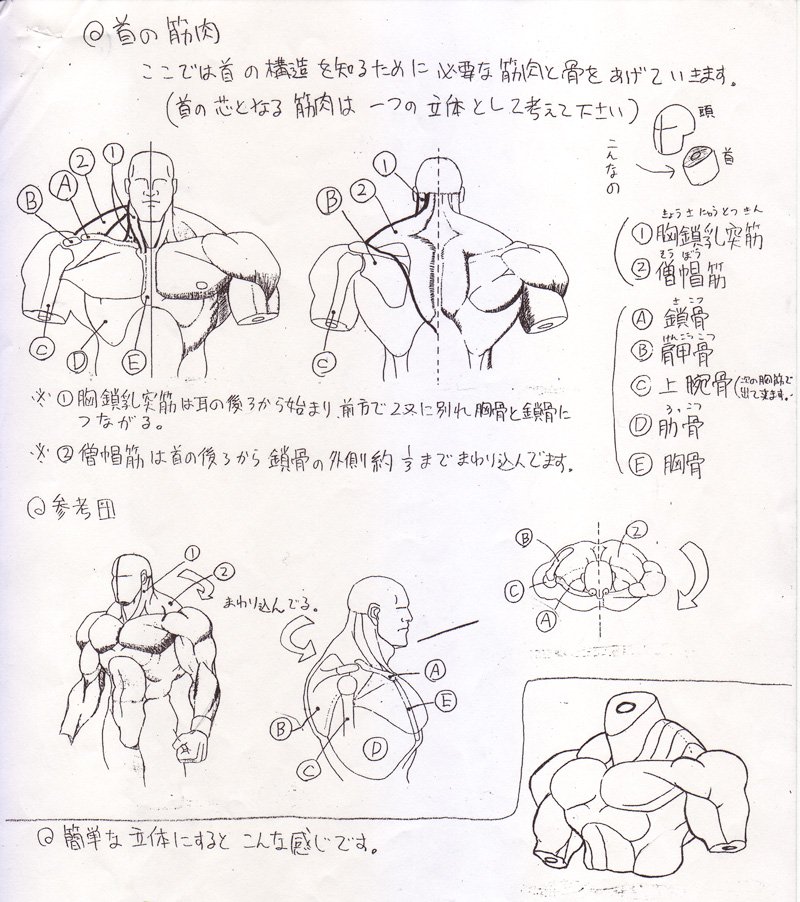 ◎首の筋肉
ここでは首の構造を知るために必要な筋肉と骨をあげていきます。
(首の芯となる筋肉は一つの立体として考えて下さい)
頭
首
こんなの
きょうさにゅうとつきん
①胸鎖乳突筋
そうぼう
②僧帽筋
さこつ
Ⓐ鎖骨
けんこうこつ
Ⓑ肩甲骨
Ⓒ上腕骨(次の胸筋で
出て来ます。)
ろっこつ
Ⓓ肋骨
Ⓔ胸骨
① ② Ⓐ Ⓑ Ⓒ Ⓓ Ⓔ
① ② Ⓑ Ⓒ
※①胸鎖乳突筋は耳の後ろから始まり、前方で2又に別れ胸骨と鎖骨に
つながる。
※②僧帽筋は首の後ろから鎖骨の外側約1/3までまわり込んでます。
◎参考図
① ②
まわり込んでる。
Ⓐ Ⓔ Ⓑ Ⓒ Ⓓ
Ⓑ ② Ⓒ Ⓐ
◎簡単な立体にするとこんな感じです。